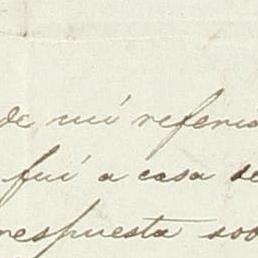 de mi referi
fuí a casa de
respuesta sob